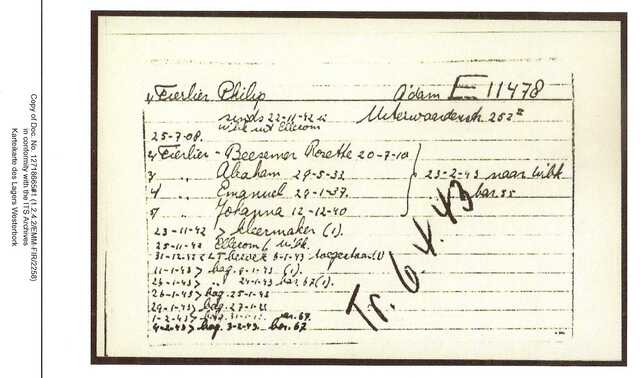 Copy of Doc. No. 12718665#1 (1.2.4.2/EMM-FIR/2258)
in conformity with the ITS Archives
Karteikarte des Lagers Westerbork
Fierlier Philip A'dam E 11478
sinds 22-11-42 in Uiterwaardenstr 252 II
Wbk uit Ellecom
25-7-08.
Fierlier - Beesemer Rosette 20-7-10
3 " Abraham 29-5-33 23-2-43 naar Wbk
4 " Emanuel 29-1-37. bar. 55
5 " Johanna 12-12-40
23-11-42 > kleermaker (1).
25-11-42 Ellecom / Wbk.
31-12-42 < LT bewerk 6-1-43 toegestaan (1)
11-1-43 > bag. 9-1-43 (1).
26-1-43 > " 24-1-43 bar. 67 (1).
26-1-43 > bag. 25-1-43
29-1-43 > bag. 27-1-43
1-2-43 > bar. 67.
4-2-43 > bag. 3-2-43. bar. 67
Tr. 6.4.43